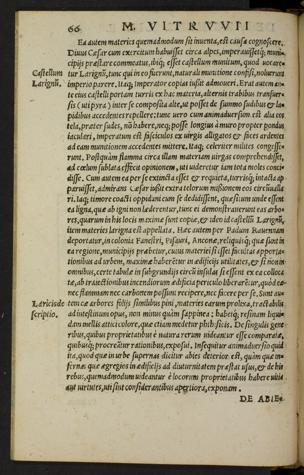 66 M. VITRVVII
Ea autem materies quemadmodum sit inuenta, est causa cognoscere.
Diuus Cæsar cum exercitum habuisset circa alpes, imperauissetq́; muni-
cipijs præstare commeatus, ibiq́; esset castellum munitum, quod uocare-
tur Larignũ, tunc qui in eo fuerunt, naturali munitione confisi, noluerunt
imperio parere, Itaq; imperator copias iussit admoueri. Erat autem an-
te eius castelli portam turris ex hac materia, alternis trabibus transuer-
sis (uti pyra) inter se composita alte, ut posset de summo sudibus & la-
pidibus accedentes repellere; tunc uero cum animaduersum est alia eos
tela, præter sudes, nõ habere, neq; posse longius à muro propter pondus
iaculari, imperatum est fasciculos ex uirgis alligatos & faces ardentes
ad eam munitionem accedentes mittere. Itaq; celeriter milites congesse-
runt. Postquàm flamma circa illam materiam uirgas comprehendisset,
ad cœlum sublata effecit opinionem, uti uideretur iam tota moles conci-
disse. Cum autem ea per se extincta esset & requieta, turrisq́; intacta ap-
paruisset, admirans Cæsar iussit extra telorum missionem eos circũualla
ri. Itaq; timore coacti oppidani cum se dedidissent, quæsitum unde essent
ea ligna, quæ ab igni non læderentur, tunc ei demonstrauerunt eas arbo-
res, quarum in his locis maximæ sunt copiæ, & ideo id castellũ Larignũ,
item materies larigna est appellata. Hæc autem per Padum Rauennam
deportatur, in colonia Fanestri, Pisauri, Anconæ, reliquisq́; quæ sunt in
ea regione, municipijs præbetur, cuius materiei si esset facultas apporta-
tionibus ad urbem, maximæ haberetur in ædificijs utilitates, & si non in
omnibus, certe tabulæ in subgrundijs circũ insulas si essent ex ea colloca
tæ, ab traiectionibus incendiorum ædificia periculo liberarẽtur, quòd eæ
nec flammam nec carbonem possunt recipere, nec facere per se. Sunt au-
tem eæ arbores folijs similibus pini, materies earum prolixa, tractabilis
ad intestinum opus, non minus quàm sappinea: habetq́; resinam liqui-
dam mellis attici colore, quæ etiam medetur phthisicis. De singulis gene
ribus, quibus proprietatibus è natura rerum uideantur esse comparatæ,
quibusq́; procreẽtur rationibus, exposui. Insequitur animaduersio quid
ita, quòd quæ in urbe supernas dicitur abies deterior est, quàm quæ in-
fernas quæ egregios in ædificijs ad diuturnitatem præstat usus, & de his
rebus, quemadmodum uideantur è locorum proprietatibus habere uitia
aut uirtutes, uti sint considerantibus apertiora, exponam.
DE ABIE=
Castellum
Larignũ.
Laricis de
scriptio.